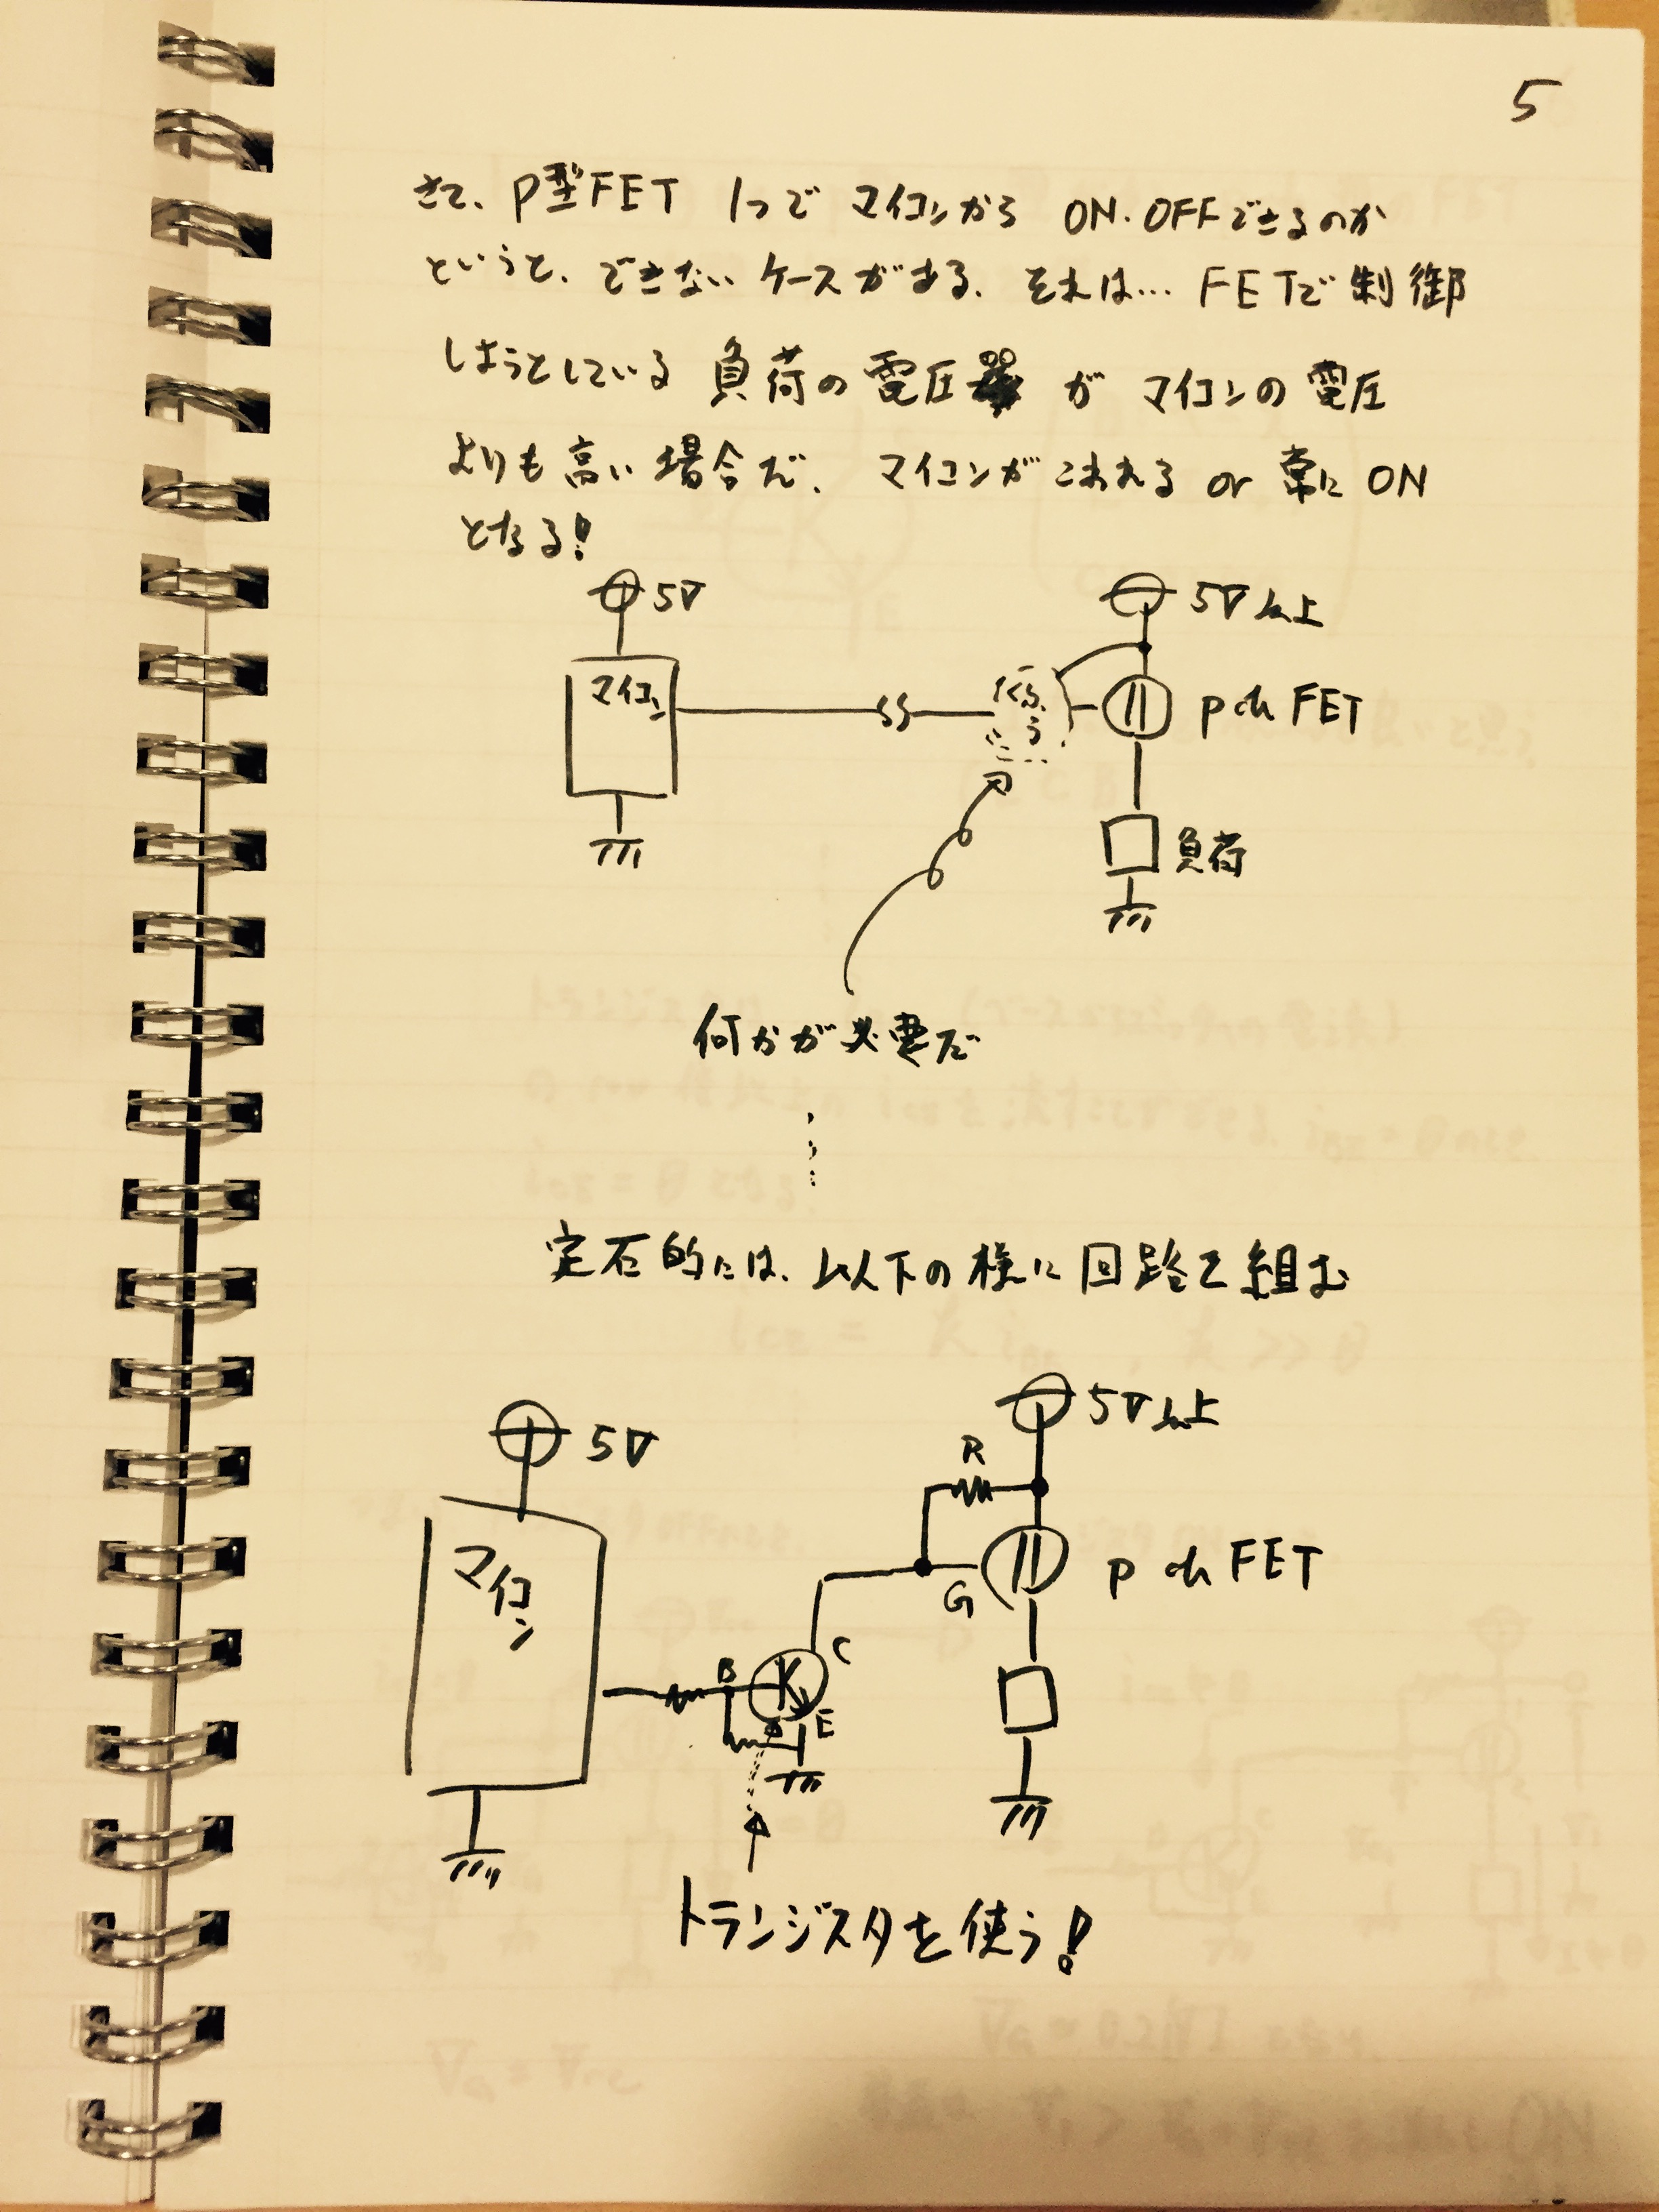 5
さて、P型FET 1つで マイコンから ON・OFFできるのか
というと、できない ケースがある。それは… FETで制御
しようとしている 負荷の電圧 が マイコンの 電圧
よりも 高い 場合だ。マイコンがこわれる or 常に ON
となる!
5V
5V以上
マイコン
Pch FET
負荷
何かが必要だ
定石的には、以下の様に回路を組む
5V以上
5V
R
マイコン
P ch FET
G
C
B
E
トランジスタを使う!